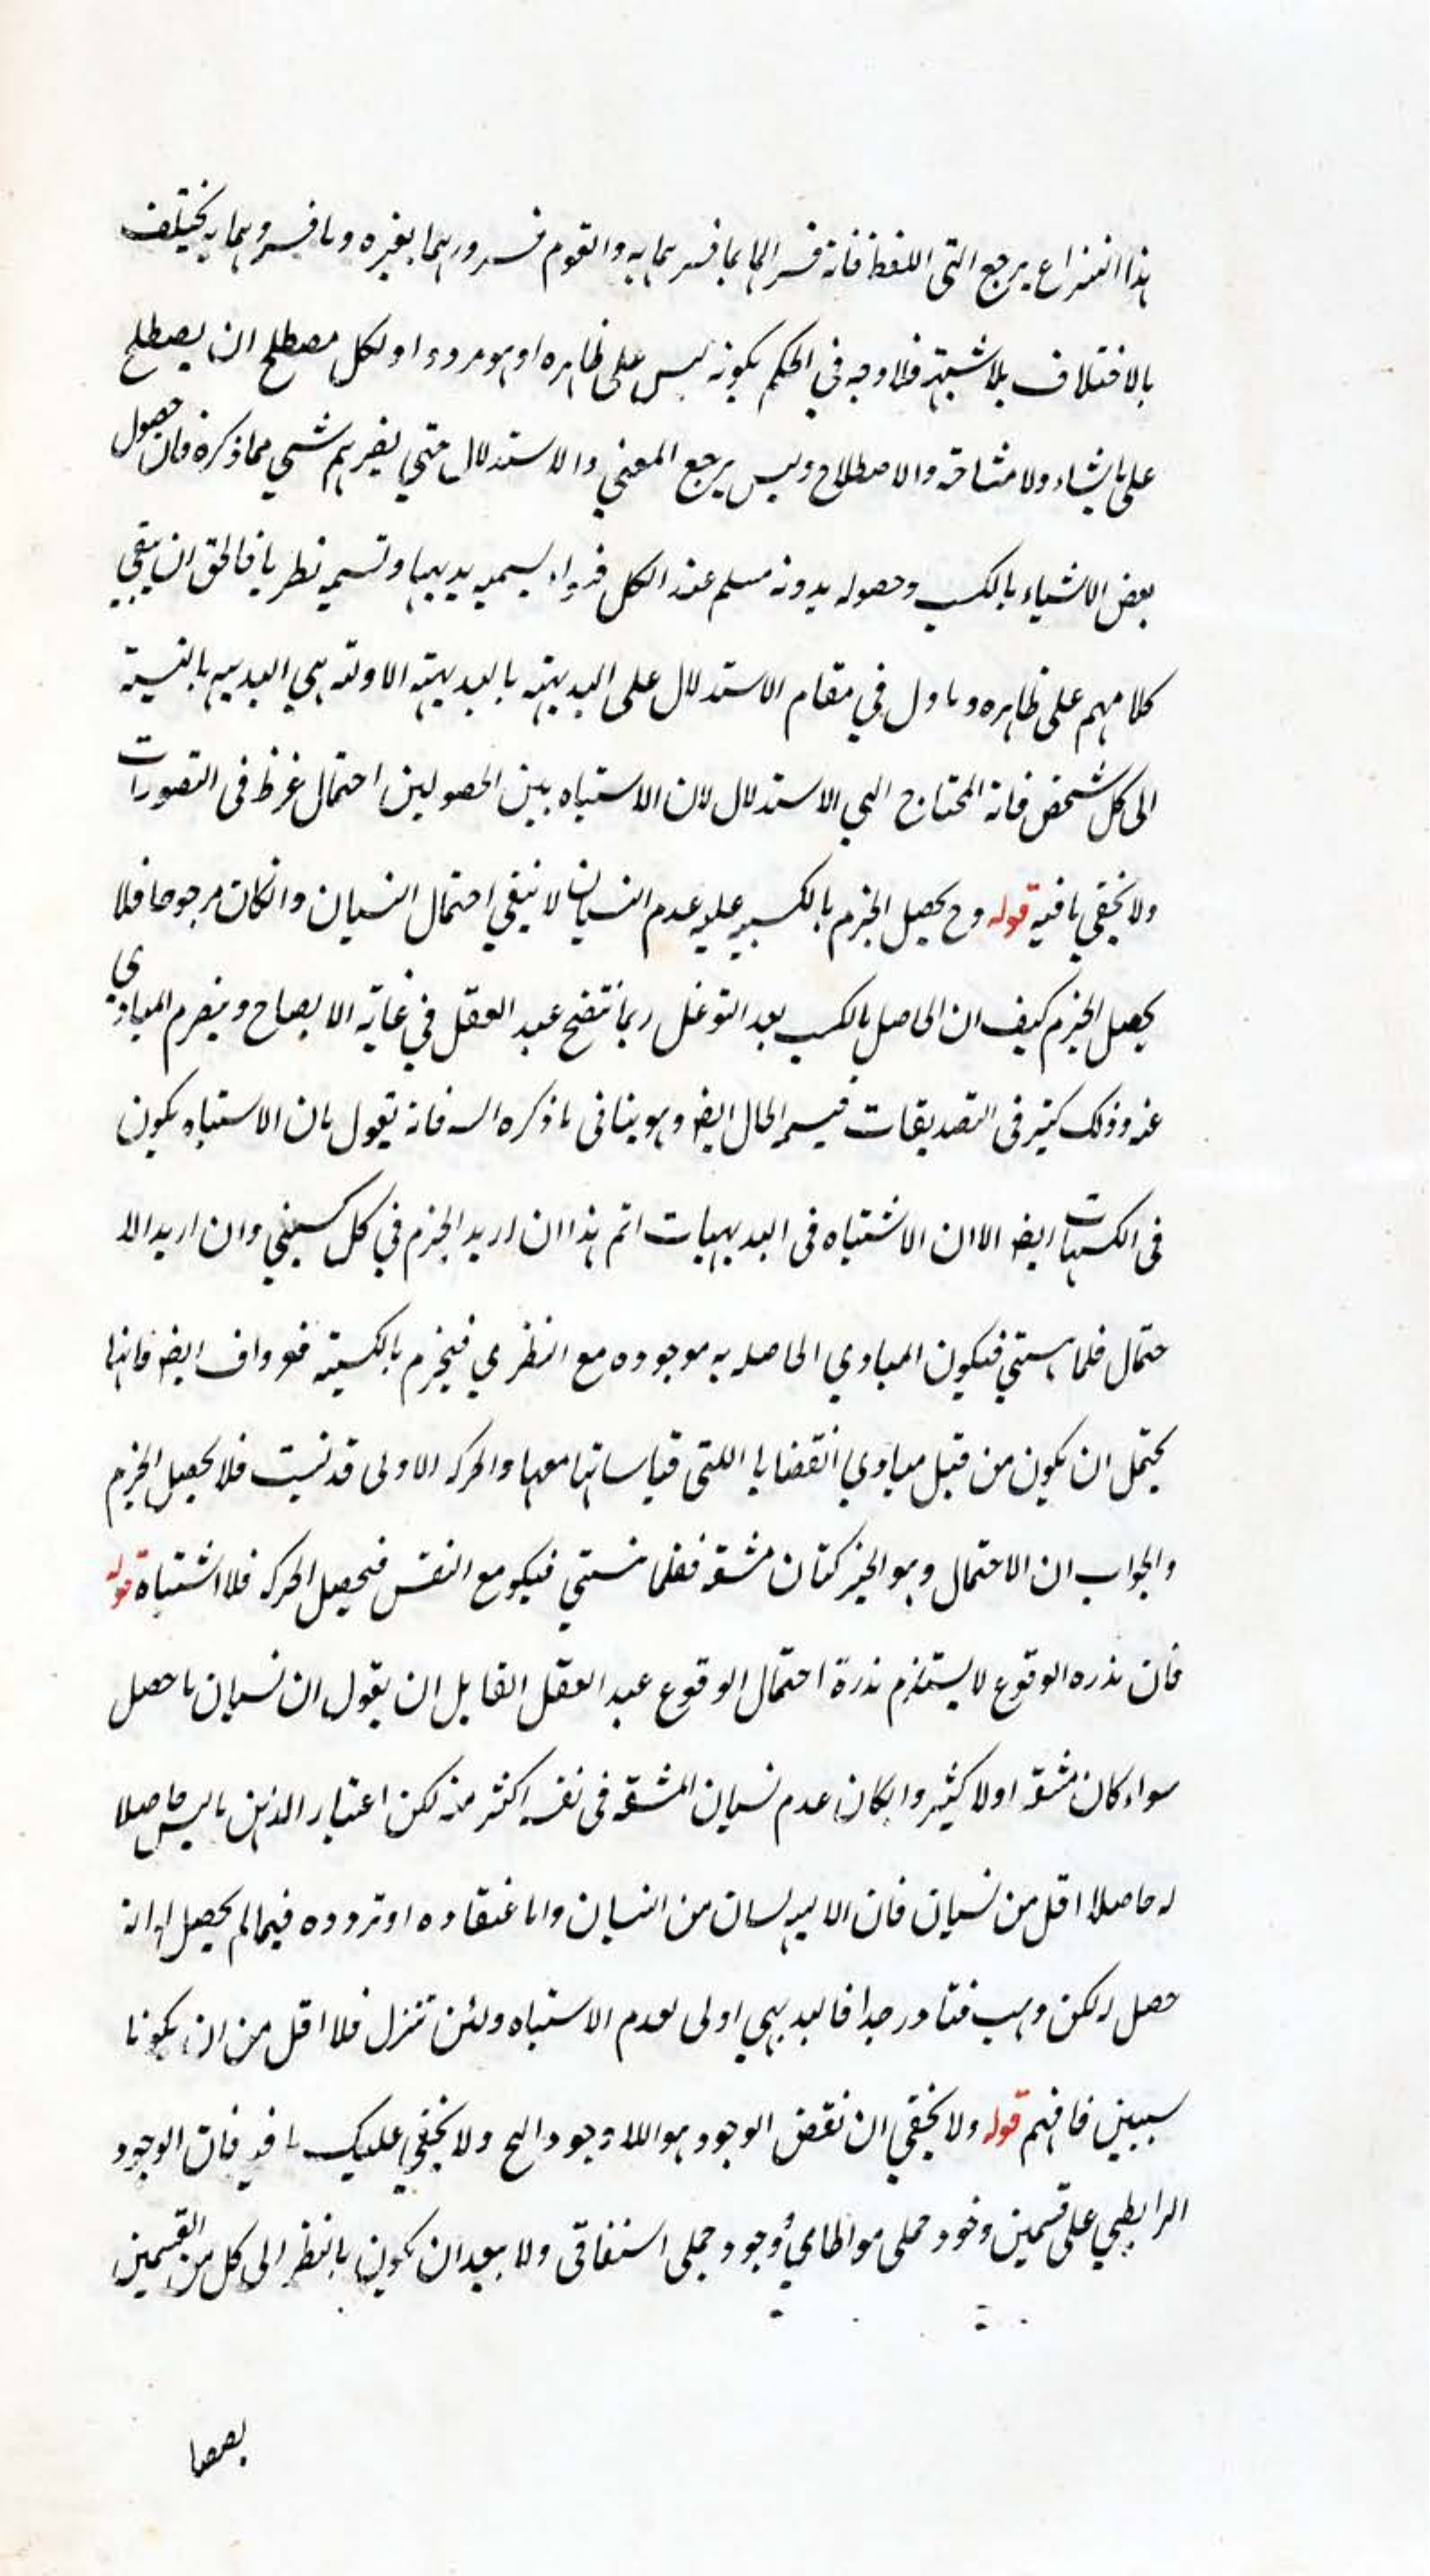 هذا النزاع يرجع التى اللفظ فانه فسر الما بما فسر بما به والقوم فسروهما بغيره وما فسروهما به يختلف
بالاختلاف بلا شبهة فلا وجه في الحكم بكونه ليس على ظاهره او هو مردود او لكل مصطلح ان يصطلح
على ما يشاء ولا مشاحة والاصطلاح وليس يرجع المعنى والاستدلال حتي يضرهم شي مما ذكره فان حصول
بعض الاشياء بالكسب وحصوله بدونه مسلم عند الكل يسميه بديهيا وتسميه نظريا فالحق ان يبقي
كلامهم على ظاهره وماول في مقام الاستدلال على البديهية بالبديهة الاولته هي البديهيه بالنسبة
الى كل شخص فانه المحتاج الي الاستدلال لان الاستباه بين الحصولين احتمال غرظ فى التصورات
ولا يخفي ما فيه قوله وح يحصل الجزم بالكسبيه عليه عدم النسيان لا ينفي احتمال النسيان وانكان مرجوحا فلا
يحصل الجزم كيف ان الحاصل بالكسب بعد التوغل ربما تتضح عند العقل في غاية الايصاح وينصرم المبادي
عنه وذلك كثير فى التصديقات فيسر الحال ايضا وهو ينافى ما ذكره السه فانه يقول بان الاستباه يكون
فى الكسبيات ايضا الا ان الاشتباه فى البديهيات اتم هذا ان اريد الجزم في كل كسبي وان اريد الا
حتمال فلما ينستي فيكون المبادي الحاصله به موجوده مع النظري فيجزم بالكسبية ايضا فانها
يحتمل ان يكون من قبل مبادي القضايا اللتى قياساتها معها والحركه الاولى قد نسيت فلا يحصل الجزم
والجواب ان الاحتمال وهو الخير كتان مشقه فقلما نستي فيكو مع النفس فيحصل الحركه فلا اشتباه قوله
فان ندره الوقوع لا يستلزم ندرة احتمال الوقوع عند العقل القايل ان يقول ان نسيان ما حصل
سواء كان مشقه اولا كثير وانكان عدم نسيان المشقه فى نفسه اكثر منه لكن اعتبار الذهن ما ليس حاصلا
له حاصلا اقل من نسيان فان الانسان من النسيان واما عتقاده او تردده فيما لم يحصل له انه
حصل له لكن فنادر جدا فالبديهي اولى لعدم الاستباه ولئن تنزل فلا اقل من ان يكونا
سببين فافهم قوله ولا يخفي ان نقض الوجود هو اللا وجود الخ ولا يخفي عليك ما فيه فان الوجود
الرابطي على قسمين وخود حملى مواطاي وجود حملى اشتقاقى ولا يبعد ان يكون بالنظر الى كل من القسمين
بعضها